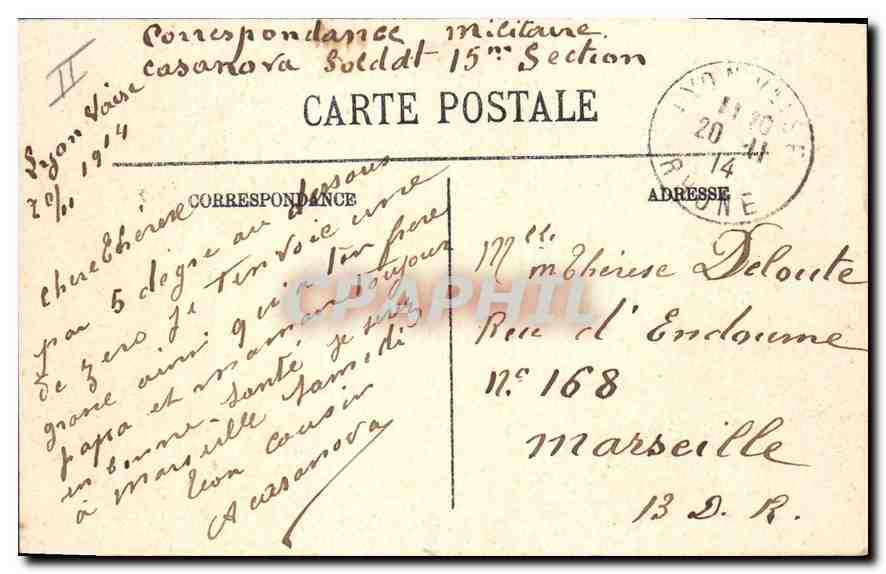 II
Correspondance militaire.
Casanova Soldat 15me Section
CARTE POSTALE
LYON VAISE
20 11
14
RHONE
CORRESPONDANCE
ADRESSE
Lyon Vaise
20/11 1914
Chere Thérèse
par 5 degre au dessous
de zero je t'envoie une
grane ainsi qu'a ton frere
papa et maman toujour
en bonne santé je serez
à Marseille Samedi
ton cousin
A Casanova
Melle m Thérese Deloute
Rue d'Endoume
No 168
Marseille
B. D. R.
CPAPHIL